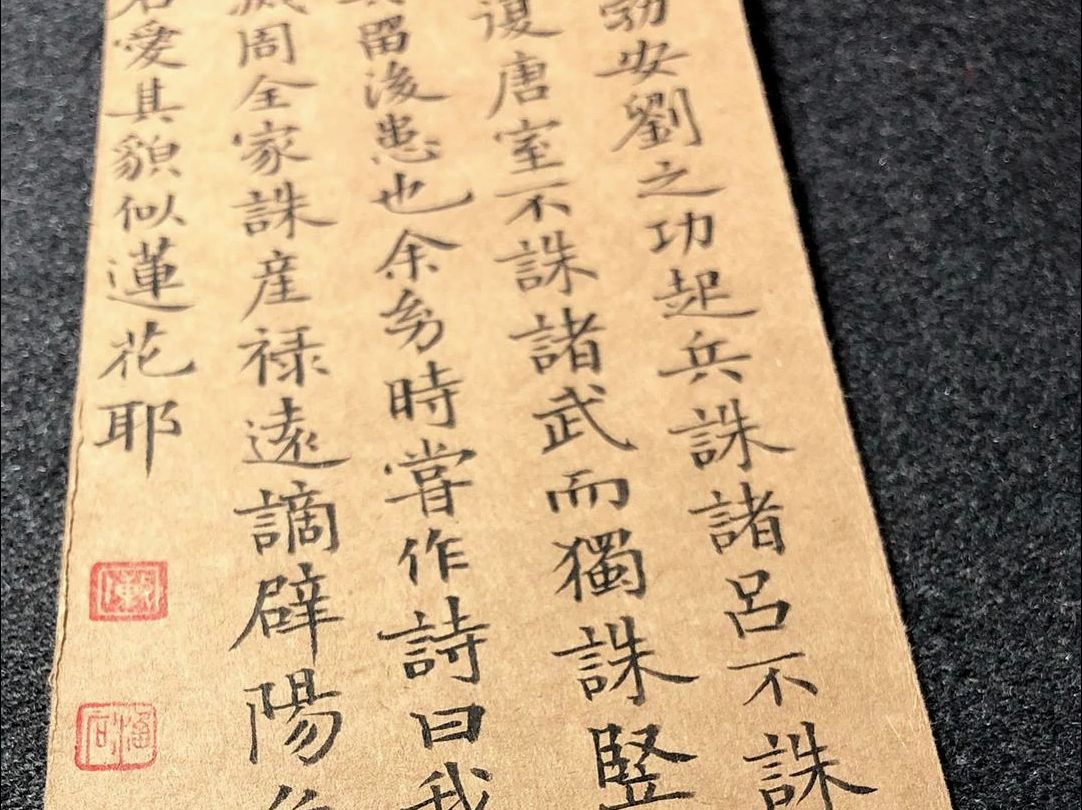 勃安劉之功起兵誅諸呂不誅
復唐室不誅諸武而獨誅豎
留後患也余幼時嘗作詩曰我
滅周全家誅産禄遠謫辟陽
愛其貌似蓮花耶